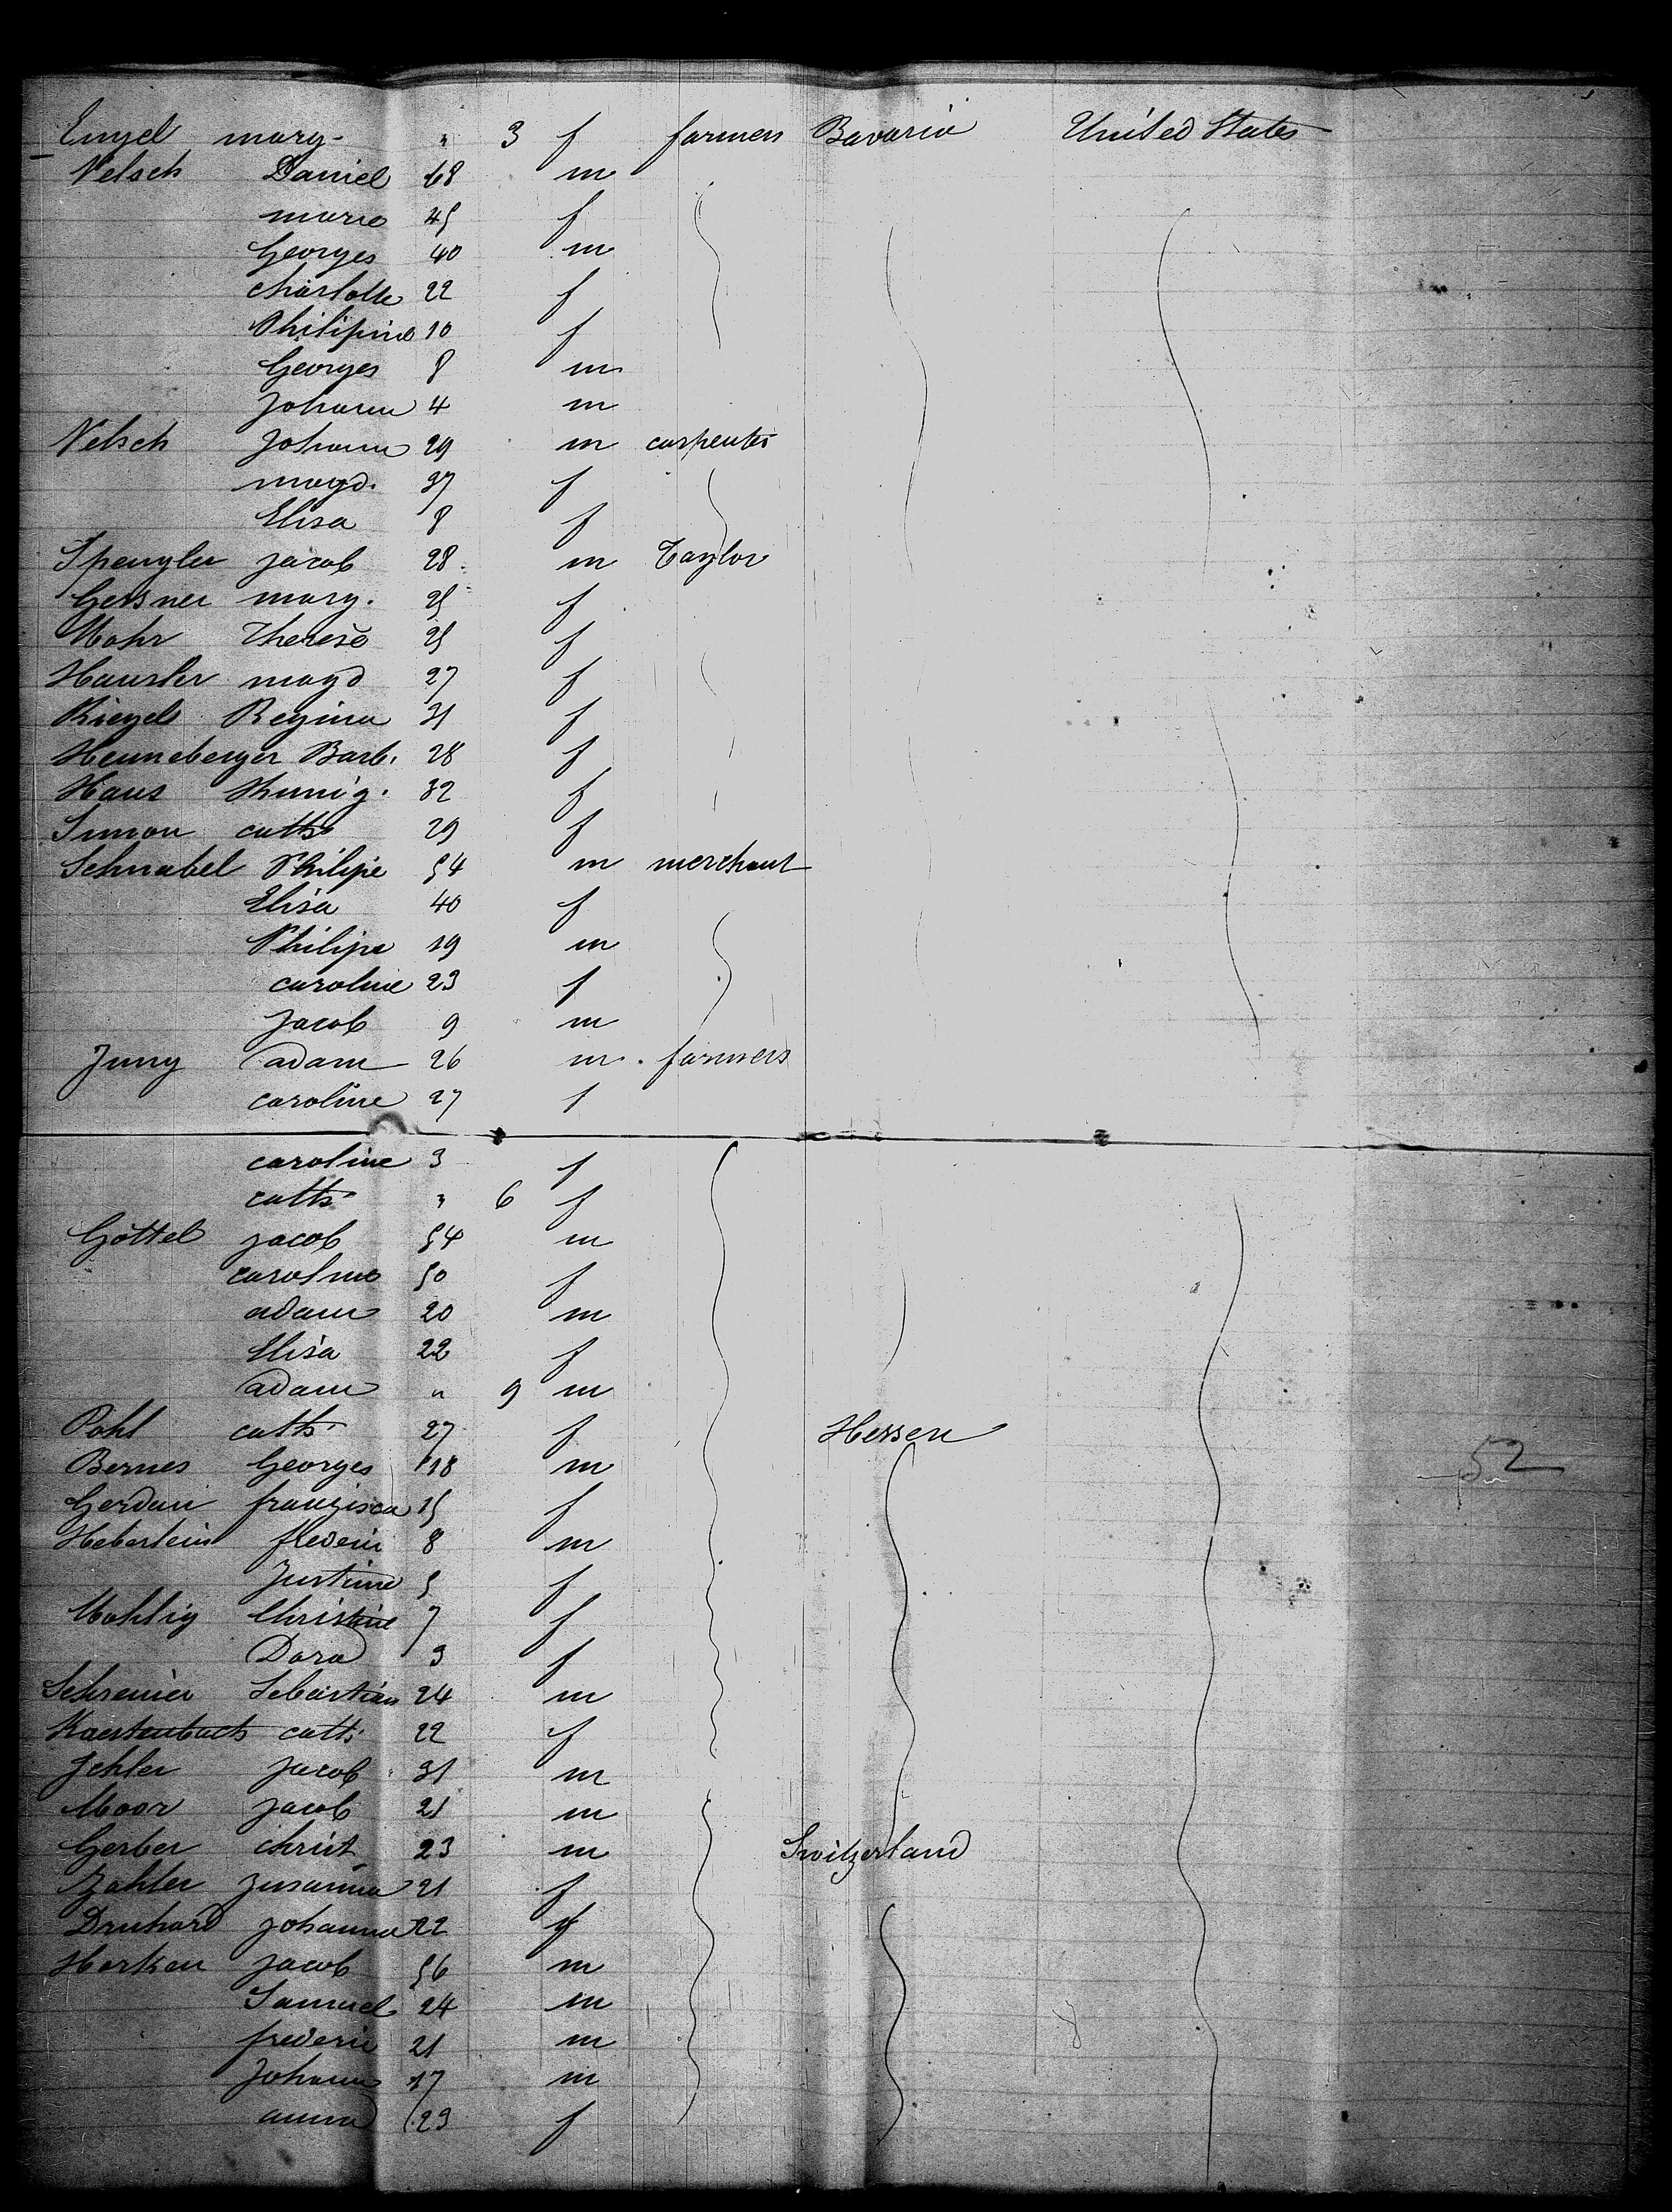 Engel mary. " 3 f farmers Bavaria United States
Velsch Daniel 68 m
marie 45 f
Georges 40 m
charlotte 22 f
Philipine 10 f
Georges 8 m
Johann 4 m
Velsch Johann 29 m carpenter
magd. 37 f
Elisa 8 f
Spengler jacob 28 m Taylor
Gersner marg. 25 f
Mohr Therese 25 f
Hausler magd 27 f
Riegel Regina 31 f
Henneberger Barb. 28 f
Haus Kunig. 32 f
Simon cath. 29 f
Schnabel Philipe 54 m merchant
Elisa 40 f
Philipe 19 m
caroline 23 f
Jacob 9 m
Jung adam 26 m farmers
caroline 27 f
caroline 3 f
cath. " 6 f
Göttel jacob 54 m
caroline 50 f
adam 20 m
Elisa 22 f
adam " 9 m
Pohl cath. 27 f Hessen
Bernes Georges 18 m 52
franzisca 15 f
Heberlein frederic 8 m
Justine 5 f
Mohlig Christine 7 f
Dora 3 f
Schreiner Sebastian 24 m
cath. 22 f
Jehler Jacob 31 m
Moor jacob 21 m
Gerber christ 23 m Switzerland
Zahler Zusanna 21 f
Druhard johanna 22 f
Herken jacob 56 m
Samuel 24 m
frederic 21 m
Johann 17 m
anna 23 f